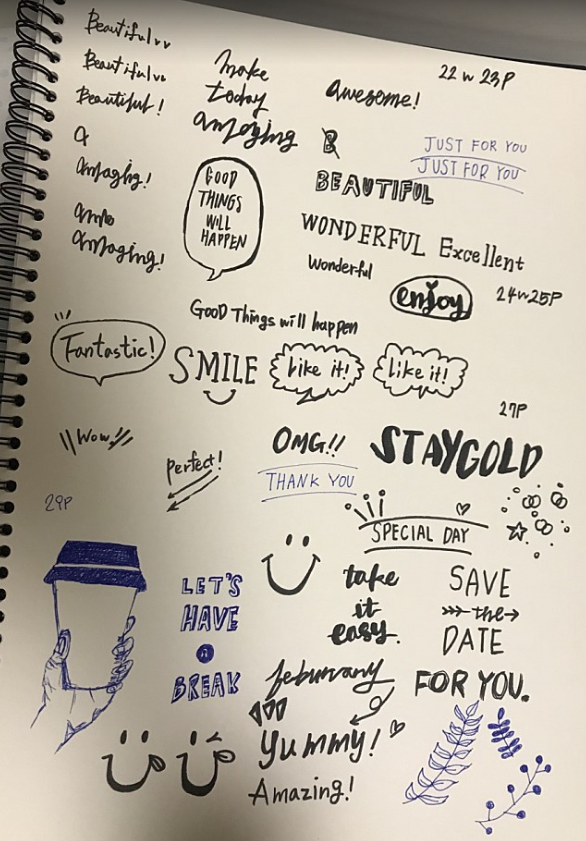 Beautiful
Beautiful
Beautiful!
a
amazing!
ama
amazing!
make
today
amazing
awesome!
22 w 23P
B
JUST FOR YOU
JUST FOR YOU
GOOD
THINGS
WILL
HAPPEN
BEAUTIFUL
WONDERFUL Excellent
Wonderful
enjoy
24w25P
GooD Things will happen
Fantastic!
SMILE
Like it!
Like it!
27P
Wow
OMG!!
STAYGOLD
perfect!
THANK YOU
29P
SPECIAL DAY
LET'S
HAVE
a
BREAK
take
it
easy.
SAVE
the
DATE
FOR YOU.
Yummy!
Amazing!